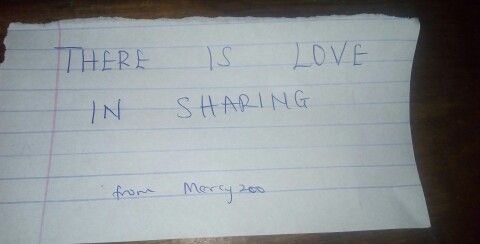 THERE IS LOVE
IN SHARING
from Mercy200